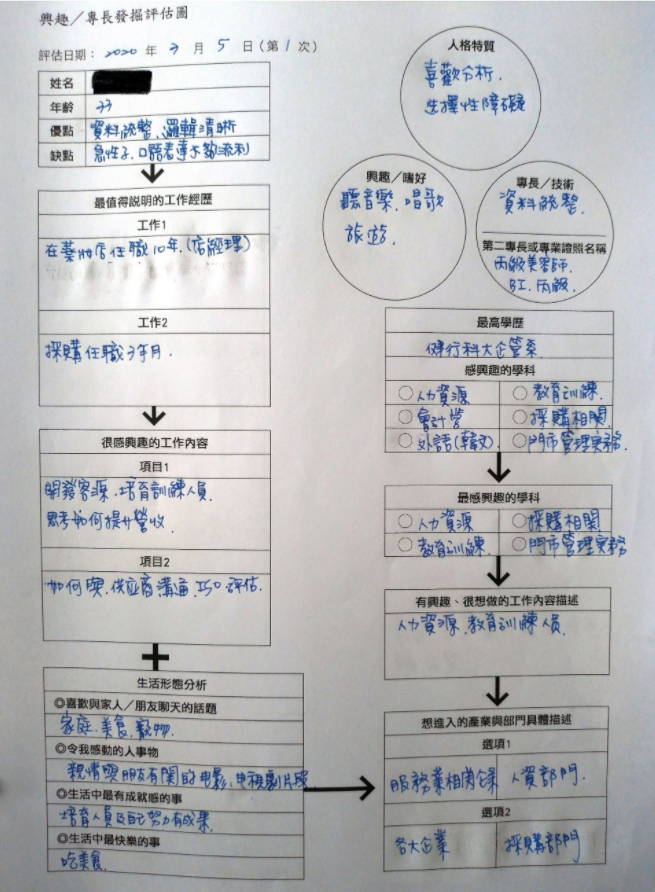 興趣／專長發掘評估圖
評估日期：2020 年 3 月 5 日(第 1 次)
姓名
年齡 33
優點 資料統整、邏輯清晰
缺點 急性子、口語表達不夠流利
最值得說明的工作經歷
工作1
在藥妝店任職10年.(店經理)
工作2
採購任職3年月.
很感興趣的工作內容
項目1
開發客源、培育訓練人員
思考如何提升營收
項目2
如何與供应商溝通、ISO評估.
生活形態分析
◎喜歡與家人／朋友聊天的話題
家庭、美食、寵物.
◎令我感動的人事物
親情與朋友有關的电影、电視劇片段
◎生活中最有成就感的事
培育人員及自己努力有成果.
◎生活中最快樂的事
吃美食.
人格特質
喜歡分析.
选擇性障礙
興趣／嗜好
聽音樂、唱歌
旅遊.
專長／技術
資料統整.
第二專長或專業證照名稱
丙級美容師.
丙級.
最高學歷
健行科大企管系
感興趣的學科
○人力資源 ○教育訓練.
○會計學 ○採購相關.
○外語(韓文) ○門市管理実務.
最感興趣的學科
○人力資源 ○採購相關
○教育訓練. ○門市管理実務
有興趣、很想做的工作內容描述
人力資源、教育訓練人員.
想進入的產業與部門具體描述
選項1
服務業相関企業 人資部門.
選項2
各大企業 採購部門